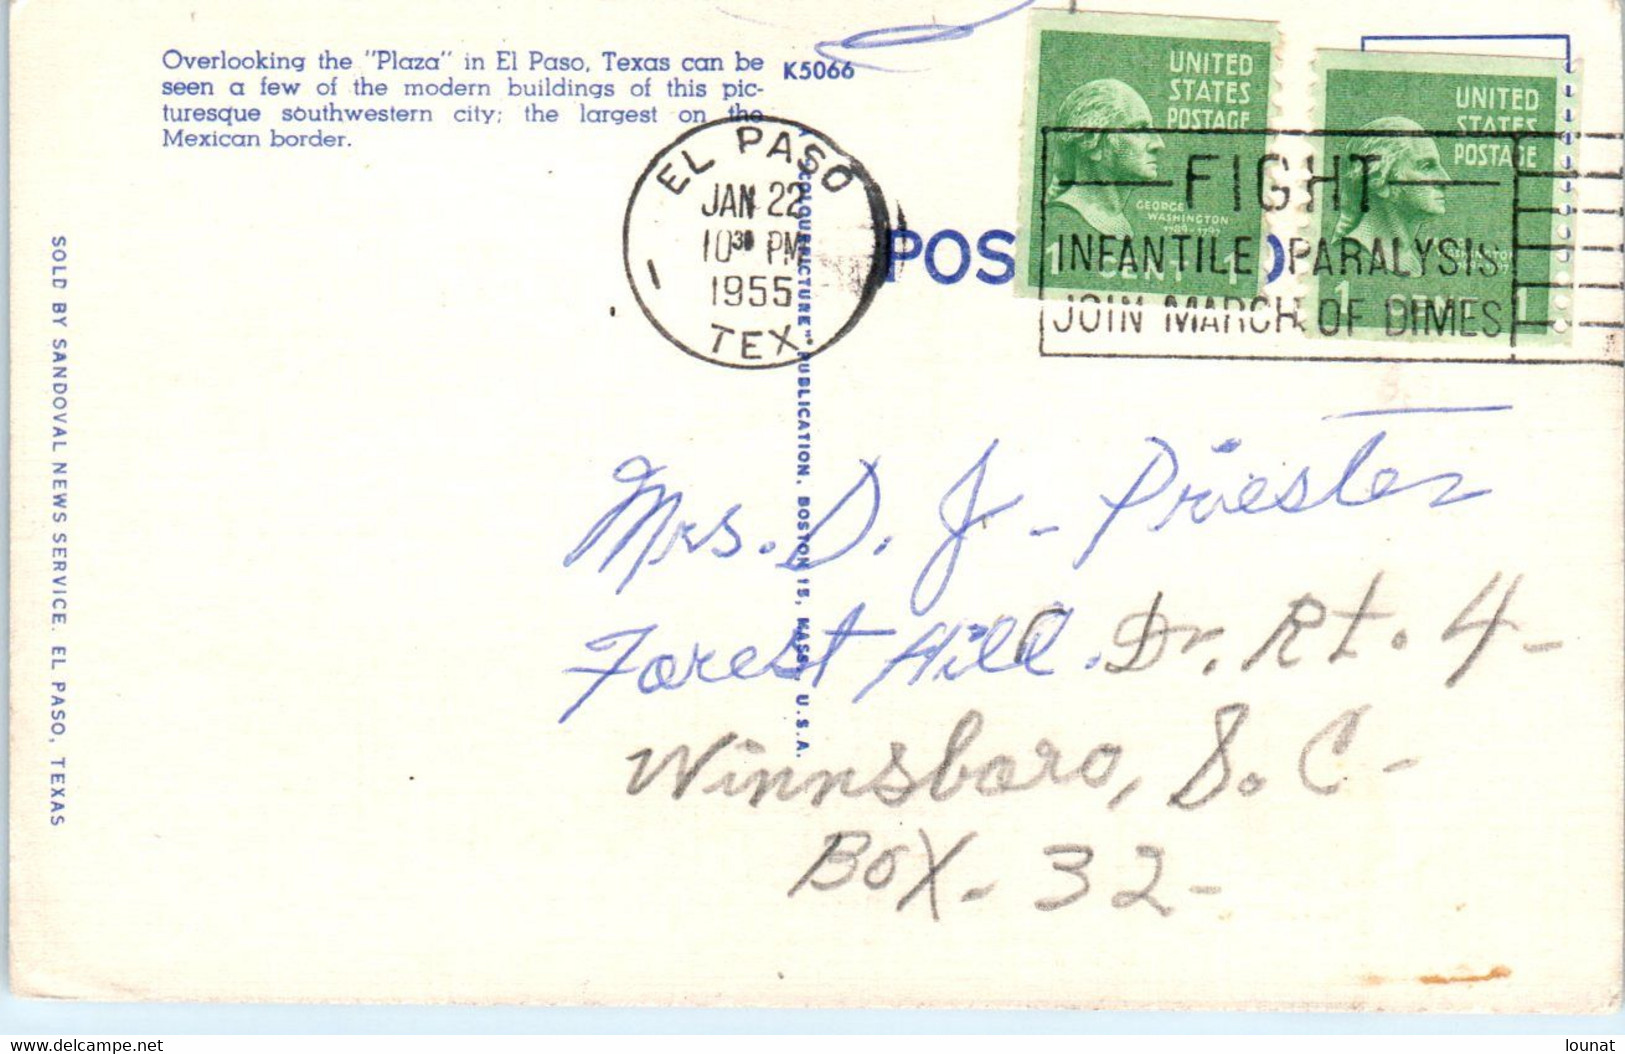 Overlooking the "Plaza" in El Paso, Texas can be
seen a few of the modern buildings of this pic-
turesque southwestern city; the largest on the
Mexican border.
K5066
EL PASO
JAN 22
10 30 PM
1955
TEX.
1
UNITED
STATES
POSTAGE
GEORGE
WASHINGTON
1789-1797
1 CENT 1
UNITED
STATES
POSTAGE
WASHINGTON
1 CENT 1
FIGHT
INFANTILE PARALYSIS
JOIN MARCH OF DIMES
POS
"COLOURPICTURE" PUBLICATION, BOSTON 15, MASS., U.S.A.
SOLD BY SANDOVAL NEWS SERVICE. EL PASO, TEXAS
Mrs. D. J - Priester
Forest Hill. Dr. Rt. 4-
Winnsboro, S. C-
Box - 32-
www.delcampe.net
lounat